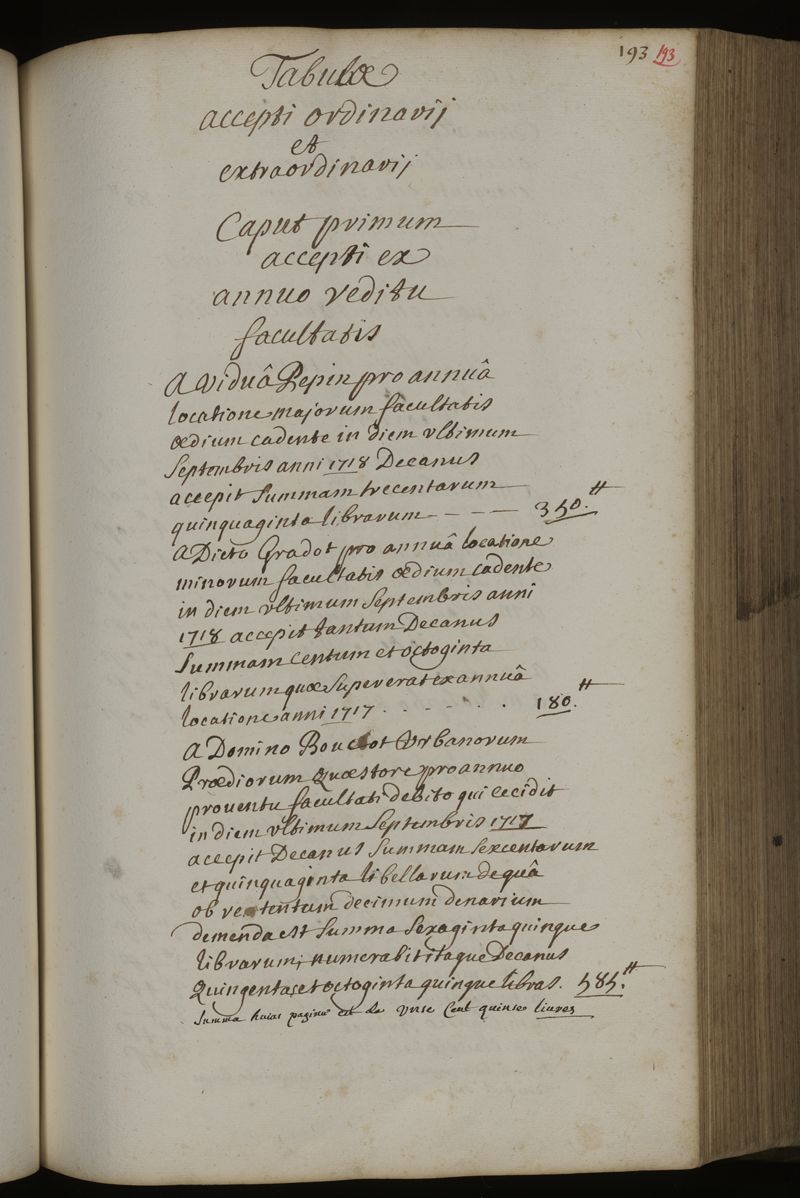 193 193
Tabulæ
accepti ordinarij
et
extraordinarij
Caput primum
accepti ex
annuo reditu
facultatis
A viduâ Pepin pro annuâ
locatione majorum facultatis
ædium cadente in diem ultimum
Septembris anni 1718 Decanus
accepit summam trecentarum
quinquaginta librarum - - - - 350.tt
A Dicto Gradot pro annuâ locatione
minorum facultatis ædium cadente
in diem ultimum Septembris anni
1718 accepit tantum Decanus
summam centum et octoginta
librarum quæ supererat ex annuâ
locatione anni 1717 . - - - . . 180.tt
A Domino Boucot Urbanorum
Prædiorum Quæstore pro annuo
proventu facultati debito qui cecidit
in diem ultimum Septembris 1717
accepit Decanus summam sexcentarum
et quinquaginta libellarum de quâ
ob retentum decimum denarium
demenda est summa sexaginta quinque
librarum; numerabit itaque Decanus
Quingentas et octoginta quinque libras. 585.tt
Summa huius paginæ est de Cent quinse livres